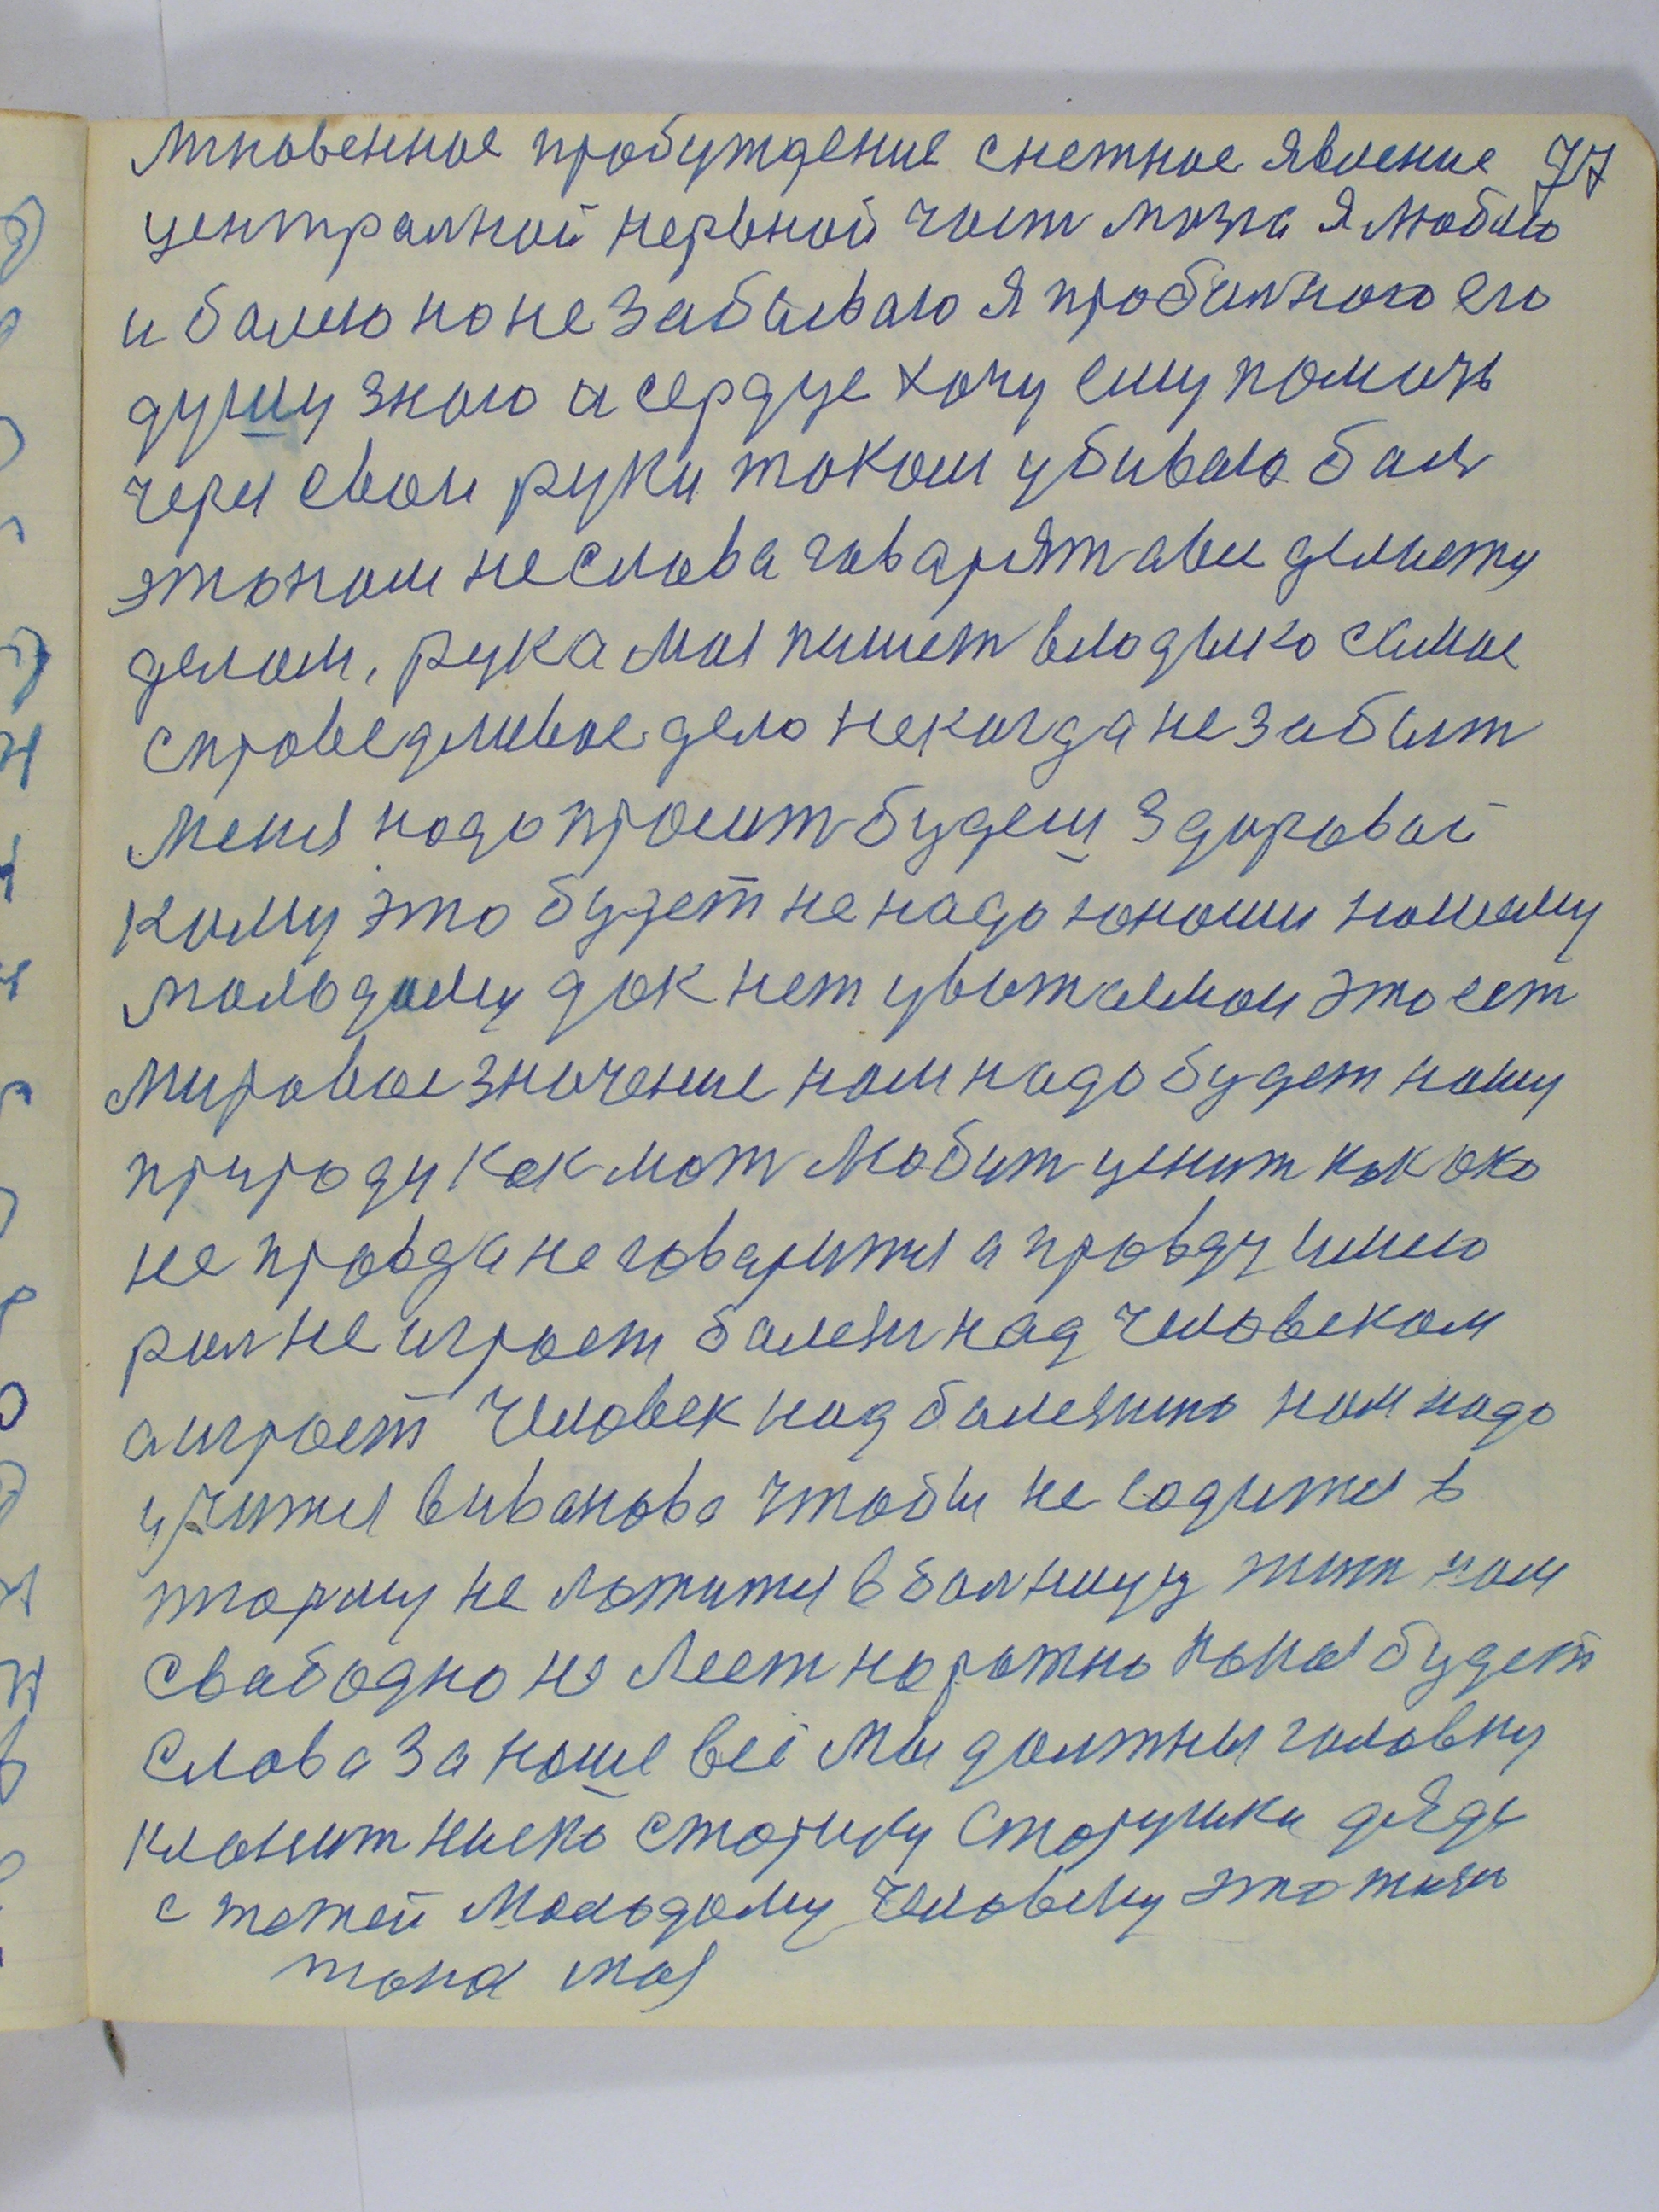 мгновенное пробуждение снежное явление 77
централной нервной част мозга Я люблю
и балею но не забываю Я про балного его
душу знаю а сердце хочу ему помочь
через свои руки током убиваю бал
это нам не слова гаварят а вси делаетя
делом, рука моя пишет владыко самое
справедливое дело некагда не забыт
меня надо просит будеш здоровай
кому это будет не надо юноши нашему
малодому дак нет уважаемаи это ест
мировое значение нам надо будет нашу
природу как мат любит ценит как око
не правда не гаварится а правду имею
рол не играет балезн над человеком
а играет человек над балезнию нам надо
учится в иванова чтобы не садится в
тюрму не ложится в балницу жит нам
свабодно не лест на рожно кокая будет
слава за наше всё мы должны головку
клонит ниско старику старушки дяде
с тетей малодому человеку это жизь
това моя